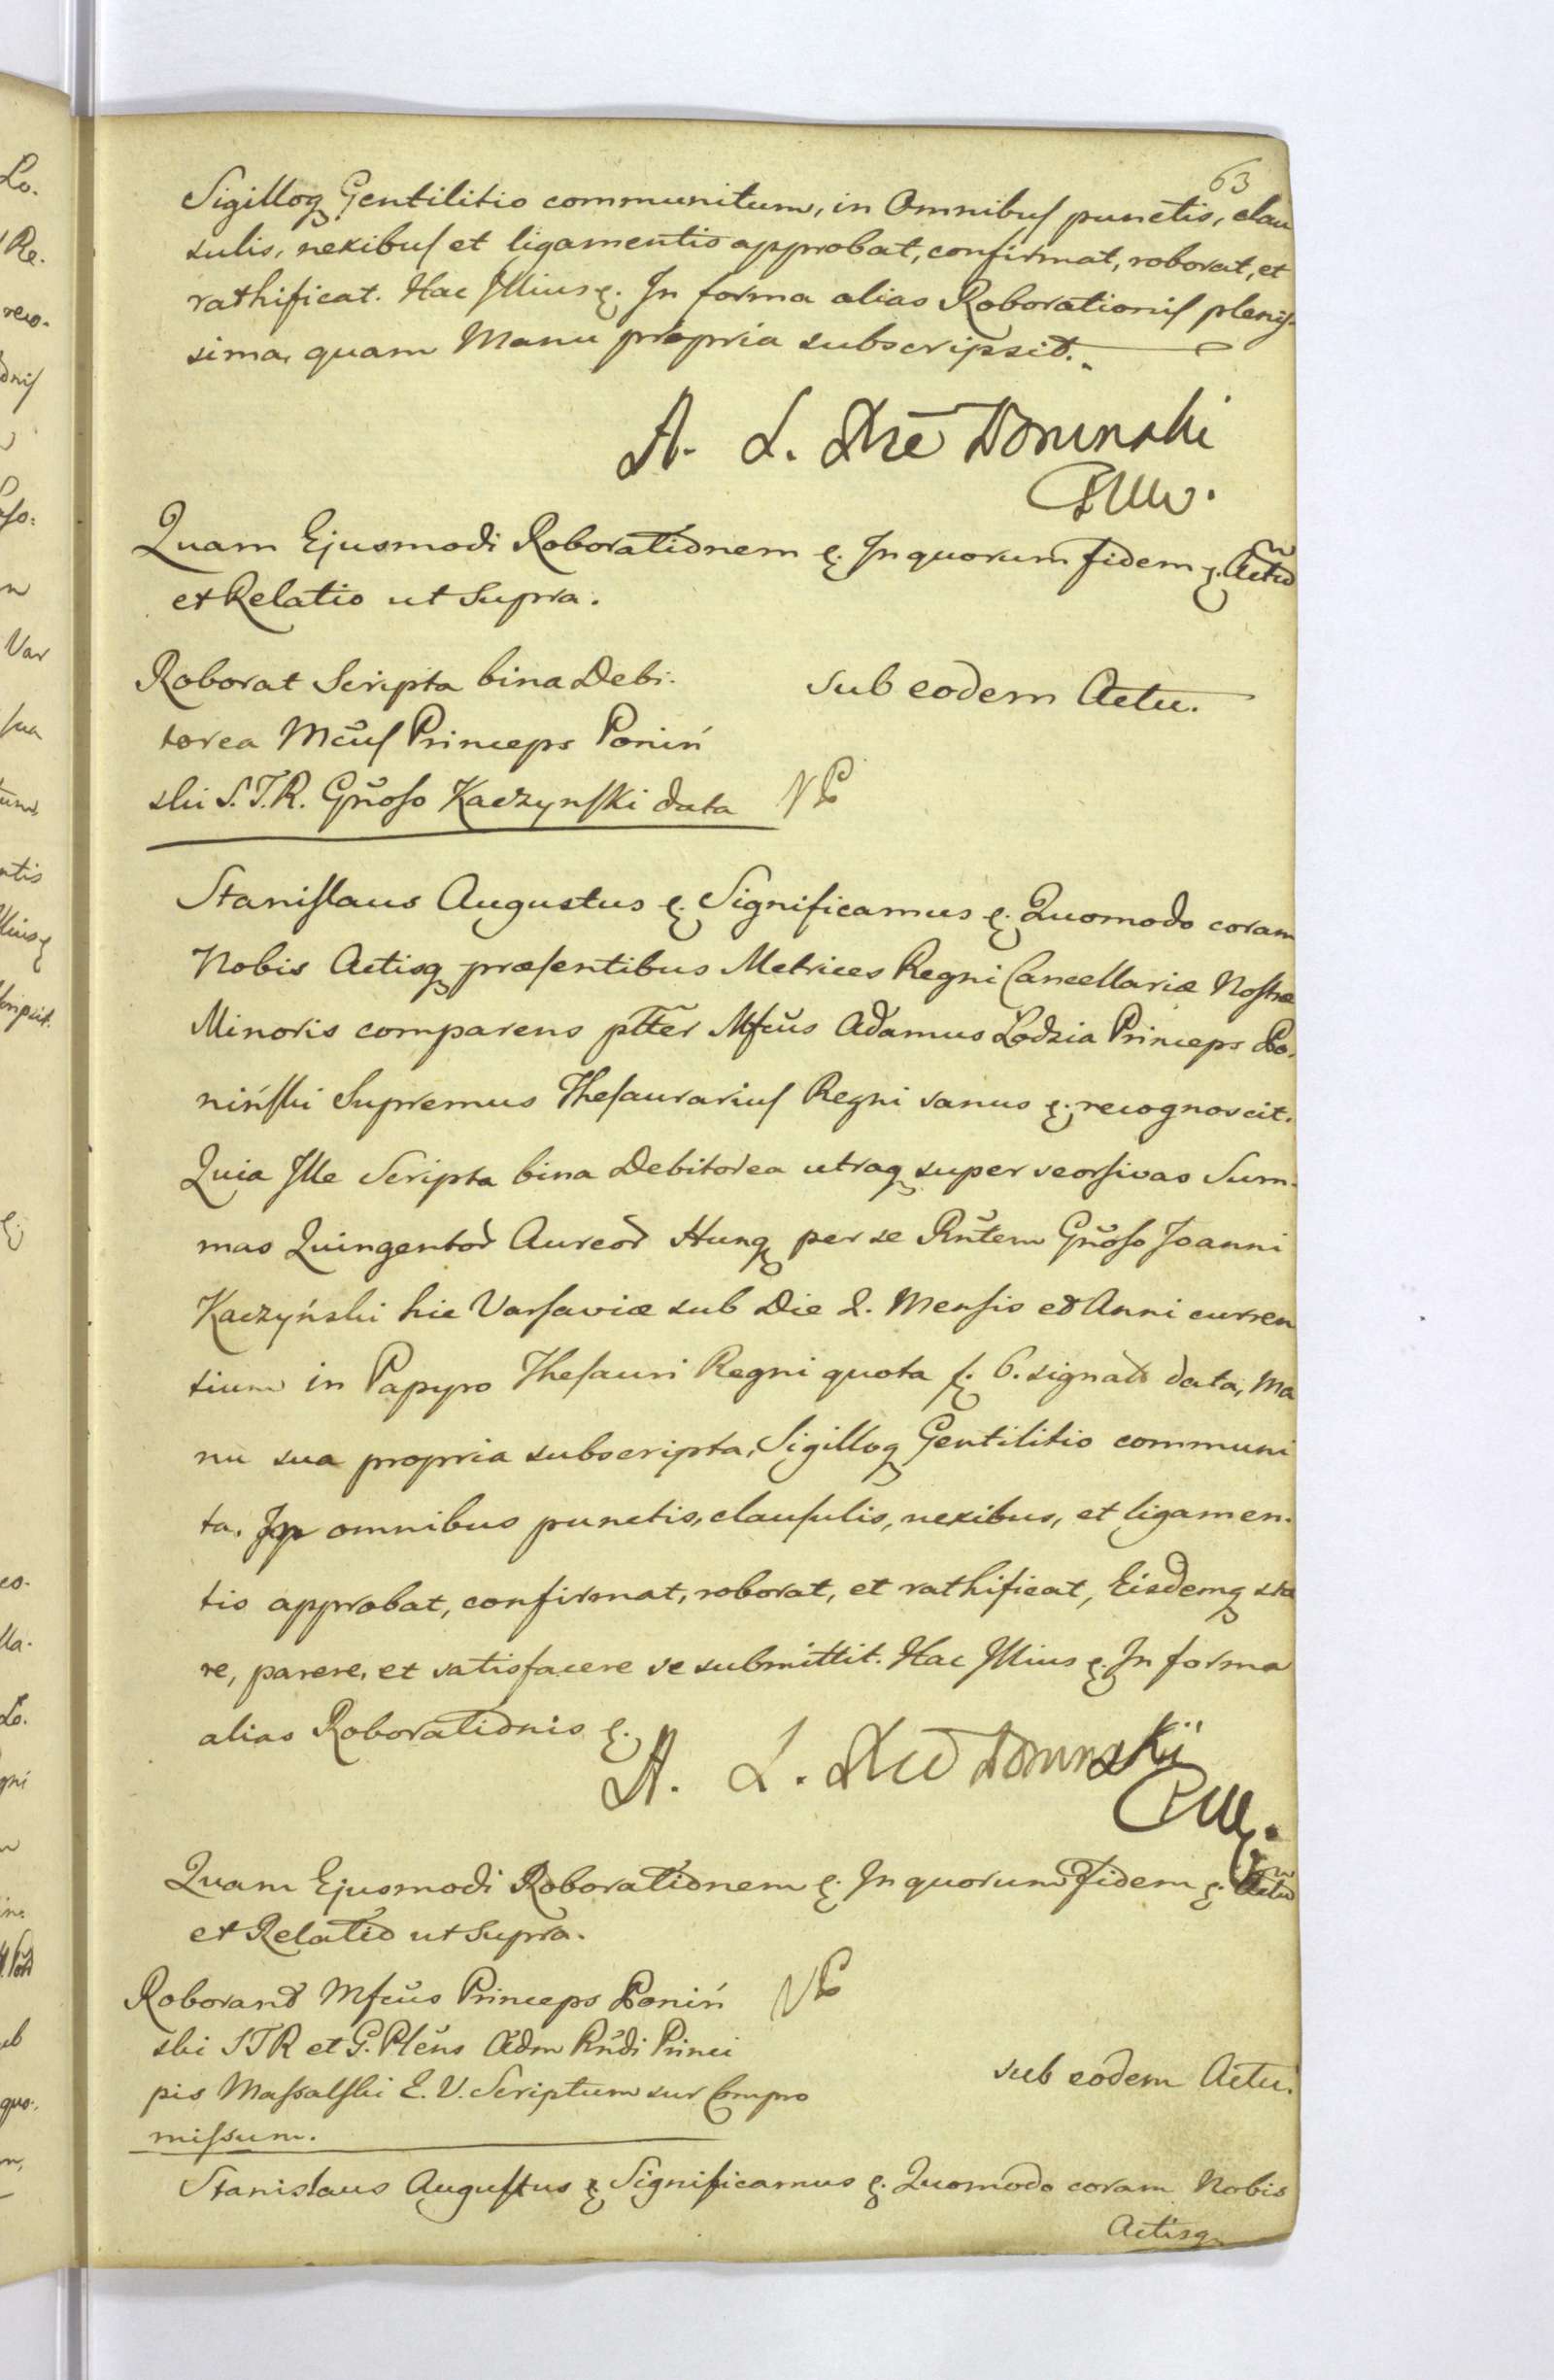 63
Sigilloq Gentilitio communitum, in Omnibus punctis, clau
sulis, nexibus et ligamentis approbat, confirmat, roborat, et
rathificat. Hac Illius &. In forma alias Roborationis plenis-
sima, quam Manu propria subscripsit.
A. L. Poninski
Quam Ejusmodi Roborationem &. In quorum fidem &. Actũ
et Relatio ut Supra.
Roborat Scripta bina Debi- sub eodem Actu.
torea Mcũs Princeps Poniń
ski S.T.R. Gñoso Kaczynski data NP
Stanislaus Augustus &. Significamus &. Quomodo coram
Nobis Actisq præsentibus Metrices Regni Cancellariæ Nostræ
Minoris comparens pttẽr Mfcũs Adamus Lodzia Princeps Po-
niński Supremus Thesaurarius Regni sanus &. recognoscit.
Quia Ille Scripta bina Debitorea utraq super seorsivas Sum-
mas Quingentor Aureor Hung per se Rñtem Gñoso Joanni
Kaczyński hic Varsaviæ sub Die 2. Mensis et Anni curren
tium in Papyro Thesauri Regni quota f. 6. signato data, Ma
nu sua propria subscripta, Sigilloq Gentilitio communi
ta. In omnibus punctis, clausulis, nexibus, et ligamen-
tis approbat, confirmat, roborat, et rathificat, Eisdemq sta
re, parere, et satisfacere se submittit. Hac Illius &. In forma
alias Roborationis &.
A. L. Poninski
Quam Ejusmodi Roborationem &. In quorum Fidem &. Actũ
et Relatio ut Supra.
Roborant Mfcũs Princeps Poniń NP
ski STR et G. Plẽns Adm Rñdi Princi
pis Massalski E. V. Scriptum sur Compro sub eodem Actu.
missum.
Stanislaus Augustus &. Significamus &. Quomodo coram Nobis
Actisq